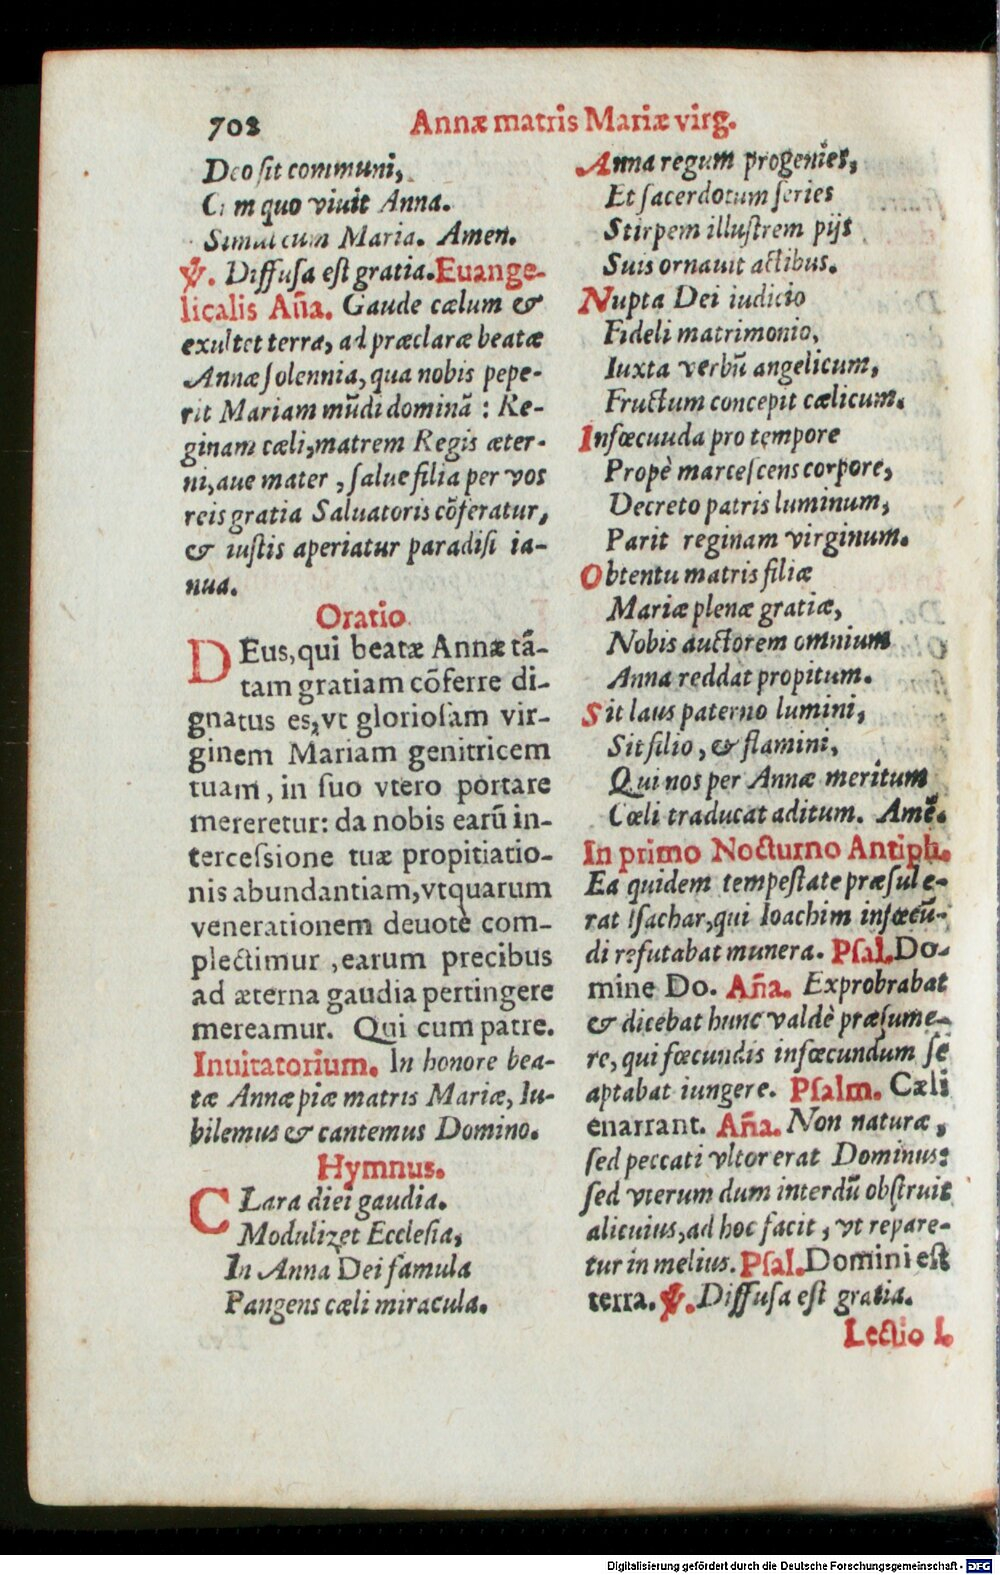 702
Annæ matris Mariæ virg.
Deo sit communi,
Cum quo viuit Anna.
Simul cum Maria. Amen.
℣. Diffusa est gratia. Euange-
licalis Añа. Gaude cælum &
exultet terra, ad præclaræ beatæ
Annæ solennia, qua nobis pepe-
rit Mariam mũdi dominã : Re-
ginam cæli, matrem Regis æter-
ni, aue mater, salue filia per vos
reis gratia Saluatoris cõferatur,
& iustis aperiatur paradisi ia-
nua.
Oratio
DEus, qui beatæ Annæ tã-
tam gratiam cõferre di-
gnatus es, vt gloriosam vir-
ginem Mariam genitricem
tuam, in suo vtero portare
mereretur: da nobis earũ in-
tercessione tuæ propitiatio-
nis abundantiam, vt quarum
venerationem deuotè com-
plectimur, earum precibus
ad æterna gaudia pertingere
mereamur. Qui cum patre.
Inuitatorium. In honore bea-
tæ Annæ piæ matris Mariæ, Iu-
bilemus & cantemus Domino.
Hymnus.
CLara diei gaudia.
Modulizet Ecclesia,
In Anna Dei famula
Pangens cæli miracula.
Anna regum progenies,
Et sacerdotum series
Stirpem illustrem pijs
Suis ornauit actibus.
Nupta Dei iudicio
Fideli matrimonio,
Iuxta verbũ angelicum,
Fructum concepit cælicum.
Infœcuuda pro tempore
Propè marcescens corpore,
Decreto patris luminum,
Parit reginam virginum.
Obtentu matris filiæ
Mariæ plenæ gratiæ,
Nobis auctorem omnium
Anna reddat propitum.
Sit laus paterno lumini,
Sit filio, & flamini,
Qui nos per Annæ meritum
Cœli traducat aditum. Amẽ.
In primo Nocturno Antiph.
Ea quidem tempestate præsul e-
rat Isachar, qui Ioachim infœcũ-
di refutabat munera. Psal. Do-
mine Do. Aña. Exprobrabat
& dicebat hunc valdè præsume-
re, qui fœcundis infœcundum se
aptabat iungere. Psalm. Cæli
enarrant. Aña. Non naturæ,
sed peccati vltor erat Dominus:
sed vterum dum interdũ obstruit
alicuius, ad hoc facit, vt repare-
tur in melius. Psal. Domini est
terra. ℣. Diffusa est gratia.
Lectio I.
Digitalisierung gefördert durch die Deutsche Forschungsgemeinschaft - DFG